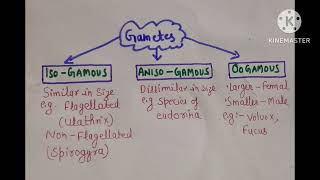 Gametes
KINEMASTER
Iso-Gamous
Similar in Size
e.g: Flagellated
(Ulothrix)
Non-Flagellated
(Spirogyra)
Aniso-Gamous
Dissimilar in size
e.g Species of
eudorina
Oogamous
Larger-Femal
Smaller-Male
e.g:- Volvox,
Fucus